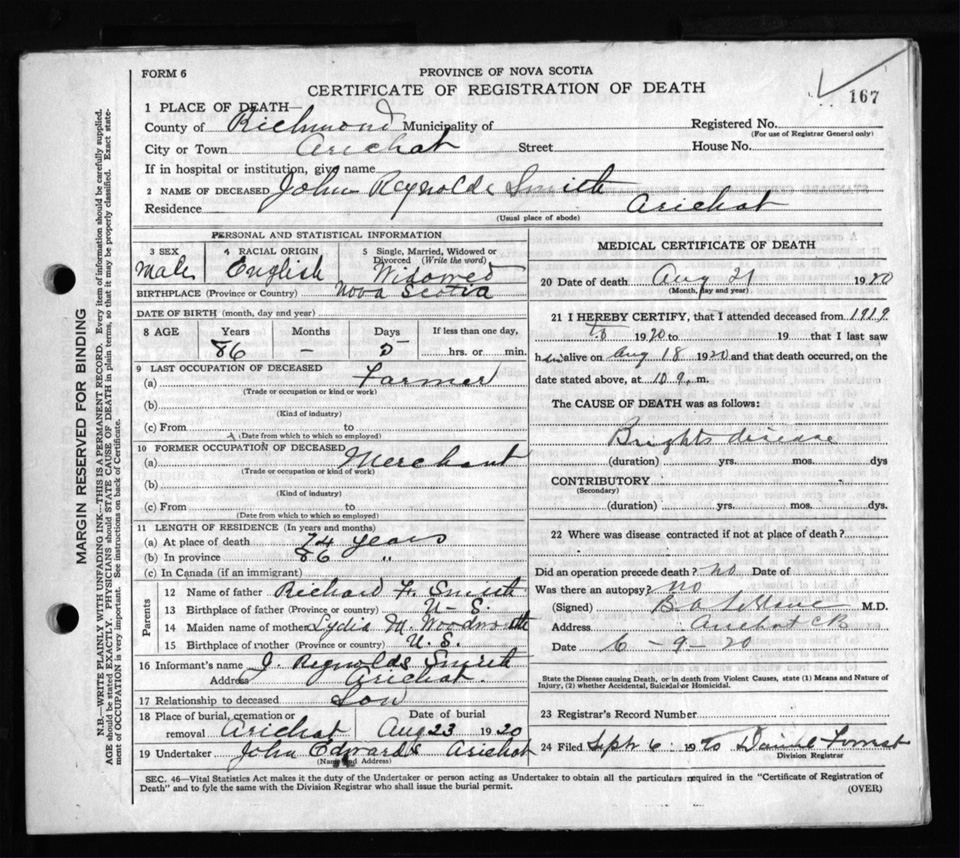 FORM 6
PROVINCE OF NOVA SCOTIA
CERTIFICATE OF REGISTRATION OF DEATH
167
1 PLACE OF DEATH—
County of Richmond Municipality of
Registered No.
(For use of Registrar General only)
City or Town Arichat Street
House No.
If in hospital or institution, give name
2 NAME OF DECEASED John Reynolds Smith
Residence Arichat
(Usual place of abode)
PERSONAL AND STATISTICAL INFORMATION
3 SEX Male
4 RACIAL ORIGIN English
5 Single, Married, Widowed or Divorced (Write the word) Widowed
BIRTHPLACE (Province or Country) Nova Scotia
DATE OF BIRTH (month, day and year)
8 AGE Years Months Days If less than one day,
86 – 5 hrs. or min.
9 LAST OCCUPATION OF DECEASED
(a) Farmer
(Trade or occupation or kind or work)
(b)
(Kind of industry)
(c) From to
(Date from which to which so employed)
10 FORMER OCCUPATION OF DECEASED
(a) Merchant
(Trade or occupation or kind of work)
(b)
(Kind of industry)
(c) From to
(Date from which to which so employed)
11 LENGTH OF RESIDENCE (In years and months)
(a) At place of death 74 years
(b) In province 86 "
(c) In Canada (if an immigrant)
Parents
12 Name of father Richard F. Smith
13 Birthplace of father (Province or country) U-S.
14 Maiden name of mother Lydia M. Woodworth
15 Birthplace of mother (Province or country) U.S.
16 Informant's name J. Reynolds Smith
Address Arichat.
17 Relationship to deceased Son
18 Place of burial, cremation or removal Arichat
Date of burial Aug 23 1920
19 Undertaker John Edwards Arichat
(Name and Address)
MEDICAL CERTIFICATE OF DEATH
20 Date of death Aug 21 1920
(Month, day and year)
21 I HEREBY CERTIFY, that I attended deceased from 1919
to 1920 to 19 that I last saw
h im alive on Aug 18 1920 and that death occurred, on the
date stated above, at 10 a. m.
The CAUSE OF DEATH was as follows:
Brights disease
(duration) yrs. mos. dys
CONTRIBUTORY
(Secondary)
(duration) yrs. mos. dys.
22 Where was disease contracted if not at place of death?
Did an operation precede death? no Date of
Was there an autopsy? no
(Signed) M.D.
Address Arichat CB
Date 6-9-20
State the Disease causing Death, or in death from Violent Causes, state (1) Means and Nature of
Injury, (2) whether Accidental, Suicidal or Homicidal.
23 Registrar's Record Number
24 Filed Sept 6 1920
Division Registrar
SEC. 46—Vital Statistics Act makes it the duty of the Undertaker or person acting as Undertaker to obtain all the particulars required in the "Certificate of Registration of
Death" and to fyle the same with the Division Registrar who shall issue the burial permit.
(OVER)
MARGIN RESERVED FOR BINDING
N.B.—WRITE PLAINLY WITH UNFADING INK—THIS IS A PERMANENT RECORD. Every item of information should be carefully supplied.
AGE should be stated EXACTLY. PHYSICIANS should STATE CAUSE OF DEATH in plain terms, so that it may be properly classified. Exact state-
ment of OCCUPATION is very important. See instructions on back of Certificate.